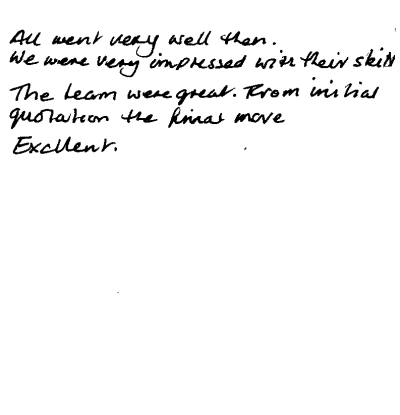 All went very well then.
We were very impressed with their skill
The team were great. From initial
quotation the final move
Excllent.